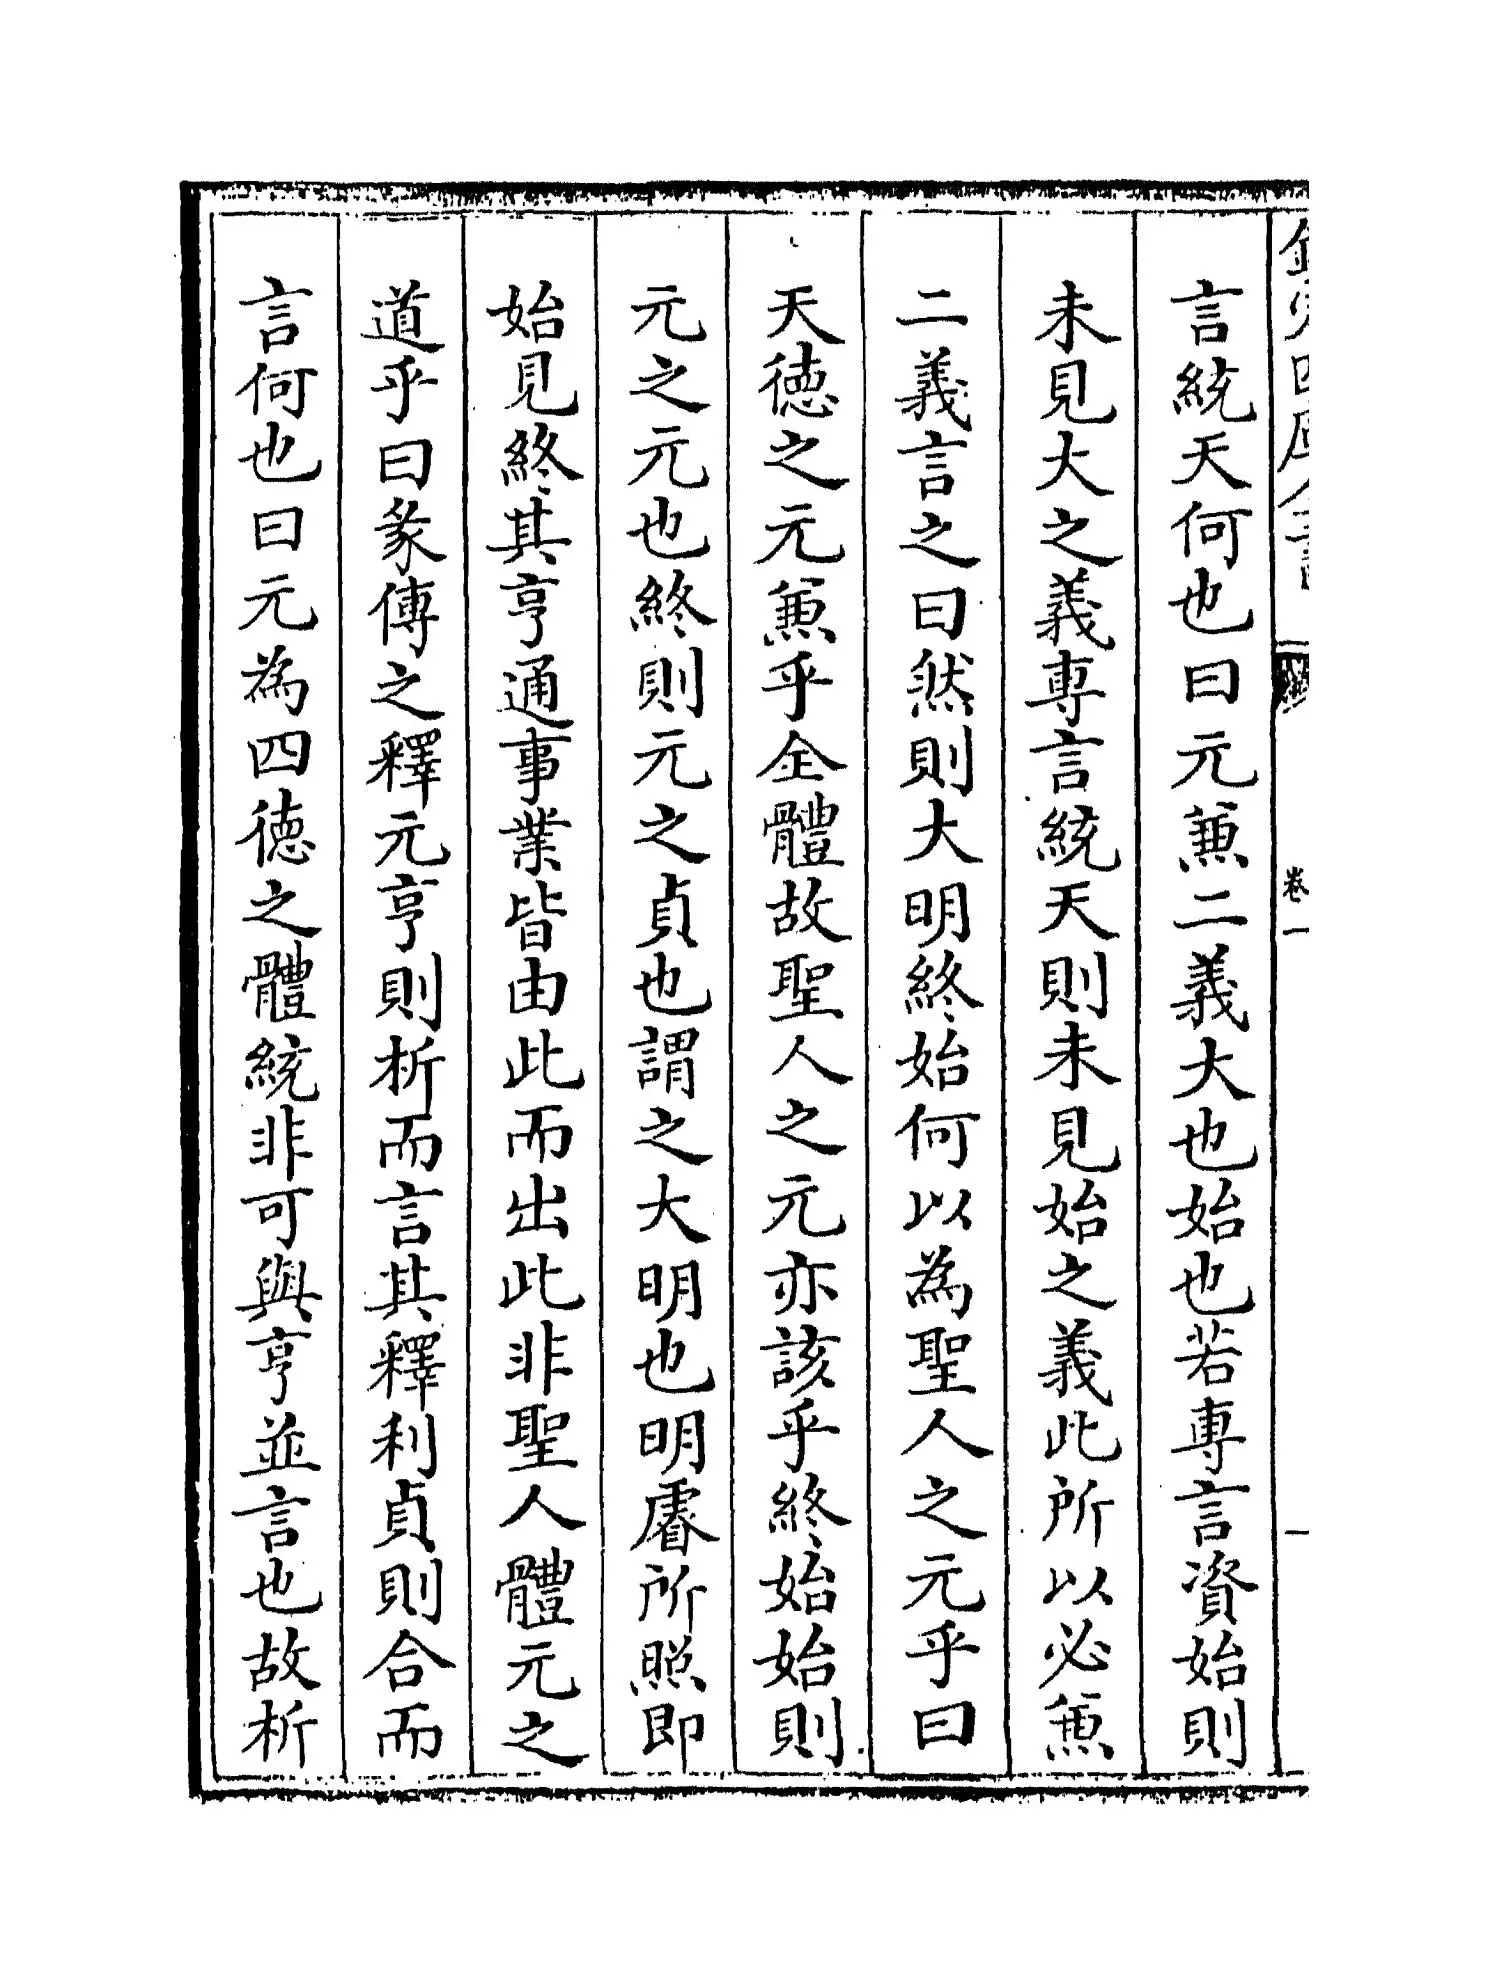 欽定四庫全書
卷一
一
言統天何也曰元蕙二義大也始也若專言資始則
未見大之義專言統天則未見始之義此所以必兼
二義言之曰然則大明終始何以為聖人之元乎曰
天德之元兼乎全體故聖人之元亦該乎終始始則
元之元也終則元之貞也謂之大明也明睿所照即
始見終其亨通事業皆由此而出此非聖人體元之
道乎曰彖傳之釋元亨則析而言其釋利貞則合而
言何也曰元為四德之體統非可與亨並言也故析